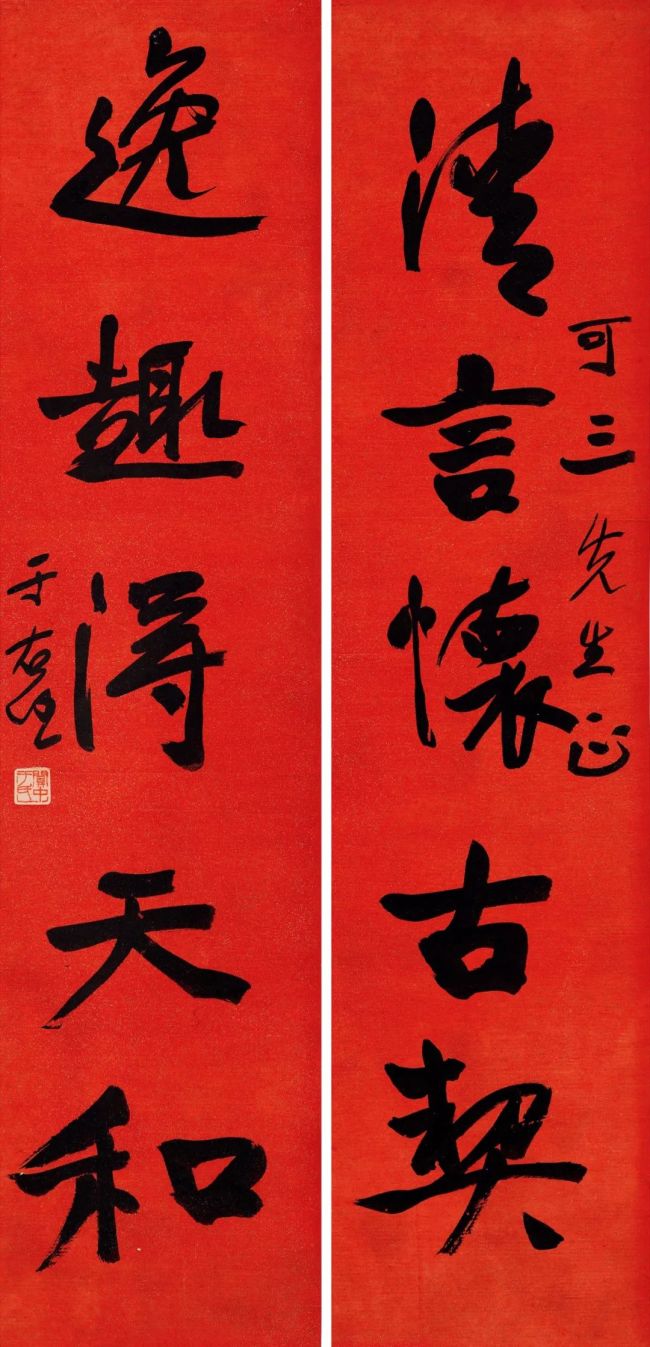 清言懷古契
可三先生正
逸趣得天和
于右任
關中于氏